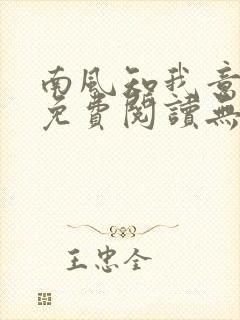 南风知我意
免費閱讀無
王忠全